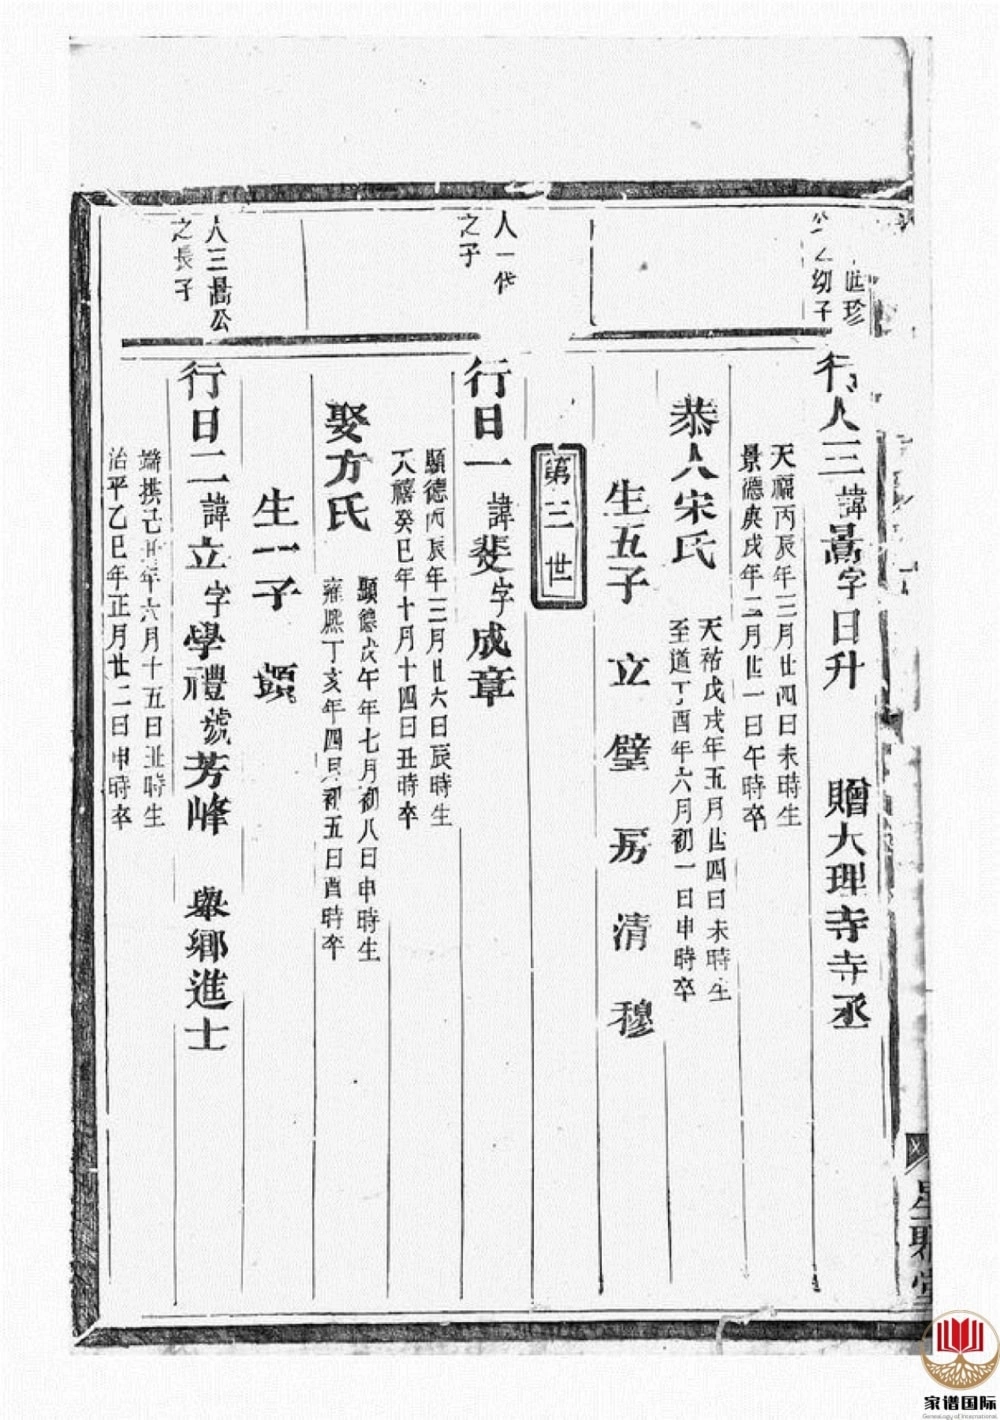 珍
之幼子
行人三諱暠字日升 贈大理寺寺丞
天福丙辰年三月廿四日未時生
景德庚戌年二月廿一日午時卒
恭人宋氏
天祐戊戌年五月廿四日未時生
至道丁酉年六月初一日申時卒
生五子 立 璧 房 清 穆
第三世
人一代
之子
行日一諱斐字成章
顯德丙辰年三月廿六日辰時生
天禧癸巳年十月十四日丑時卒
娶方氏
顯德戊午年七月初八日申時生
雍熈丁亥年四月初五日酉時卒
生一子 頭
人三暠公
之長子
行日二諱立字學禮號芳峰 舉鄉進士
端拱己丑年六月十五日丑時生
治平乙巳年正月廿二日申時卒
堂
家谱国际
Genealogy of International